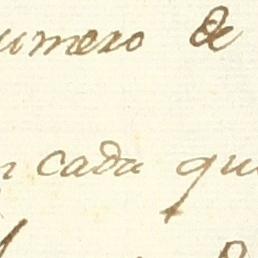 umero de
n cada qu